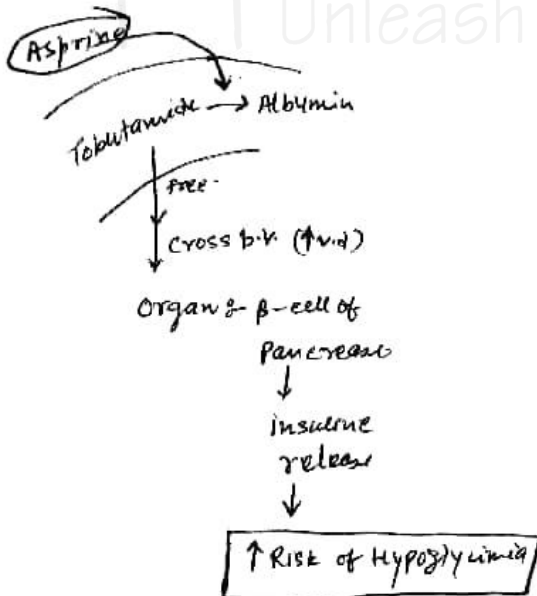 Unleash
Asprine
Tobutamide → Albumin
free.
Cross b.v. (↑v.d)
Organ :- β-cell of
Pancrease
↓
insuline
release
↓
↑ Risk of Hypoglycimia